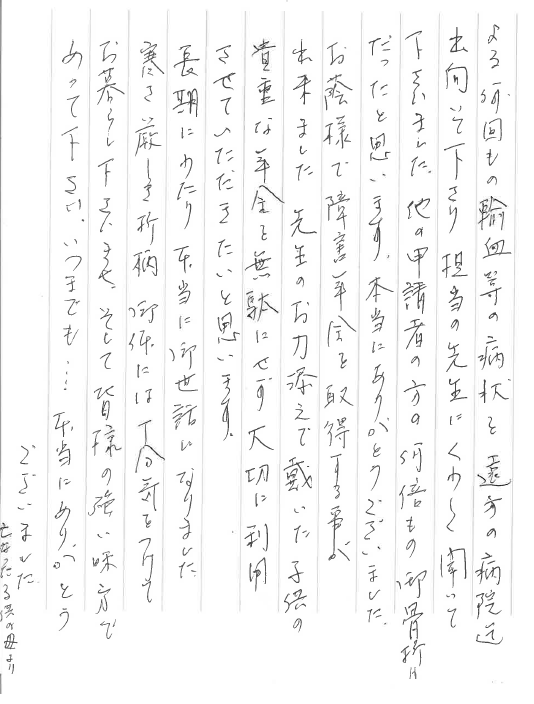 よる何回もの輸血等の病状を遠方の病院迄
出向いて下さり担当の先生にくわしく聞いて
下さいました。他の申請者の方の何倍もの御骨折り
だったと思います。本当にありがとうございました。
お蔭様で障害年金を取得する事が
出来ました 先生のお力添えで戴いた子供の
貴重な年金を無駄にせず大切に利用
させていただきたいと思います。
長期にわたり本当に御世話になりました
寒さ厳しき折柄 御体には十分気をつけて
お暮らし下さいませ。そして皆様の強い味方で
あって下さい。いつまでも… 本当にありがとう
ございました。
子供の母より